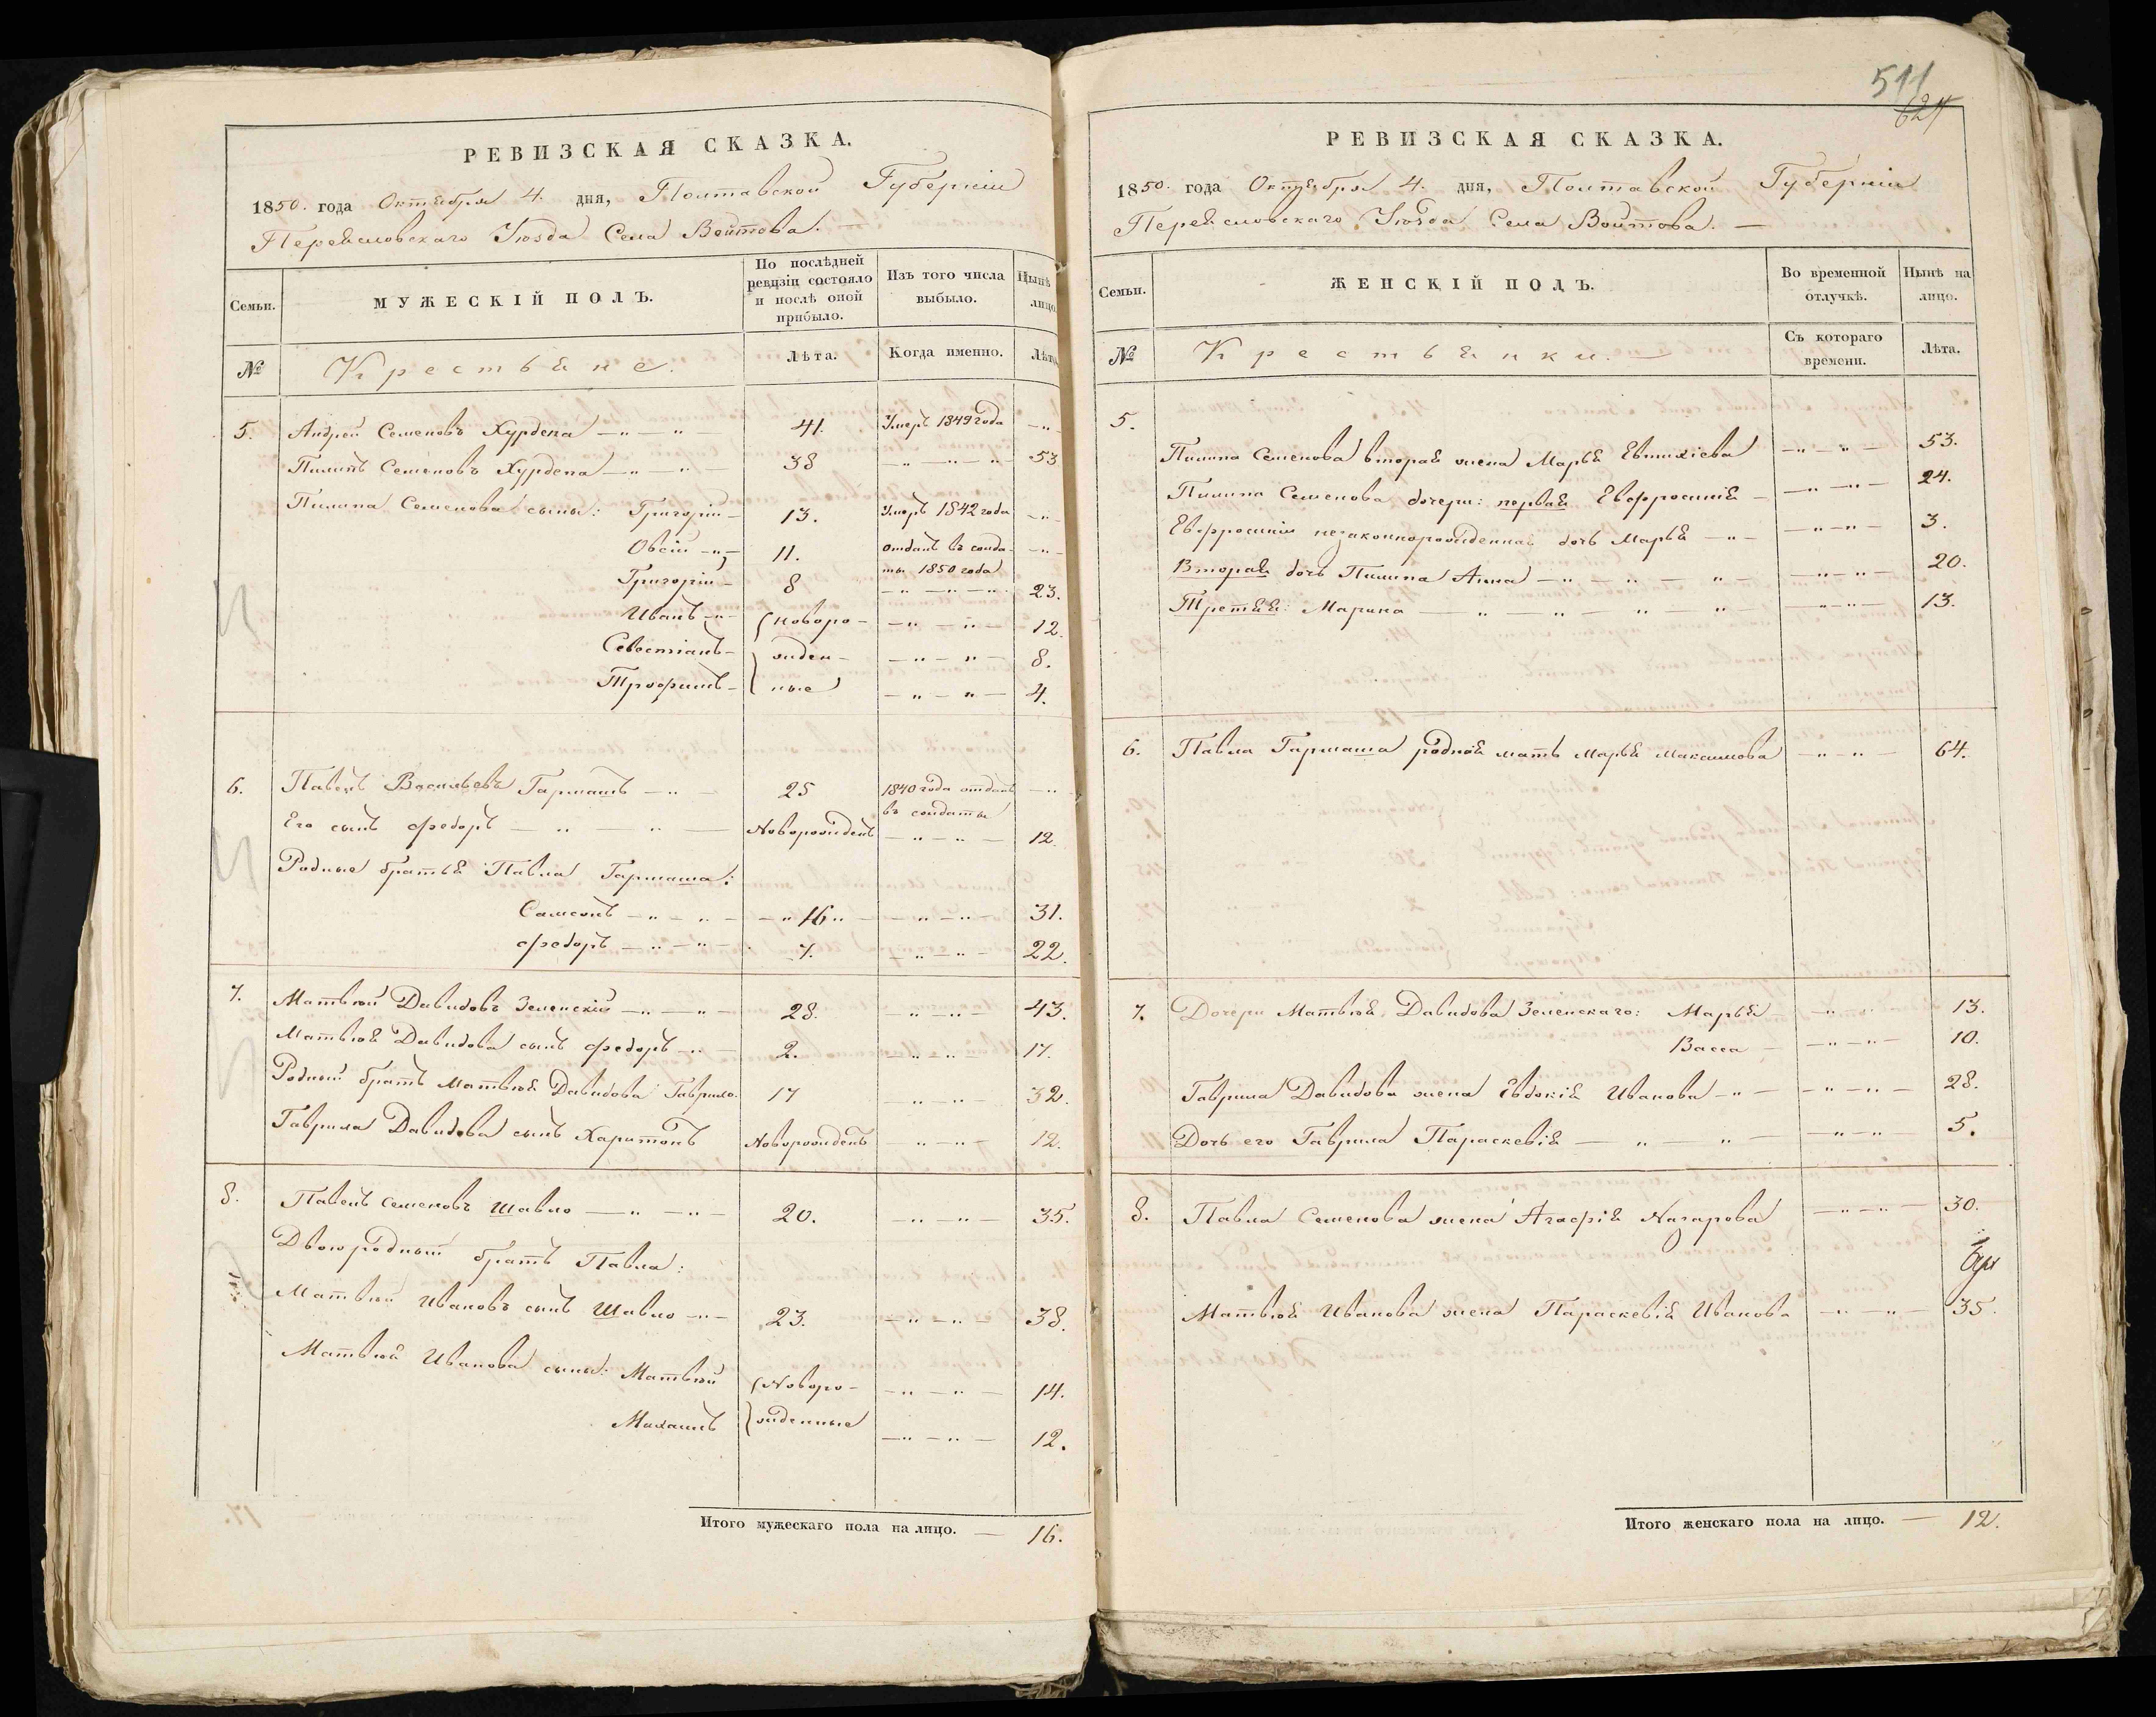 РЕВИЗСКАЯ СКАЗКА.
1850. года Октября 4. дня, Полтавской Губерніи
Переясловскаго Уѣзда Села Войтова. —
Семьи.
МУЖЕСКІЙ ПОЛЪ.
По послѣдней ревизіи состояло и послѣ оной прибыло.
Изъ того числа выбыло.
Нынѣ лицо.
№
Крестьяне.
Лѣта.
Когда именно.
Лѣта
5. Андрей Семеновъ Хурдепа — 41. Умеръ 1849 года —
Пилипъ Семеновъ Хурдепа — 38 — 53
Пилипа Семенова сыны: Григорій — 13. Умеръ 1842 года —
Овсій — 11. отданъ въ солда- —
ты 1850 года
Григорій — 8 — 23.
Иванъ — (новоро- — 12.
Севостіанъ — жден- — 8.
Трофимъ — ные — 4.
6. Павелъ Васильевъ Гармашъ — 25 1840 года отданъ —
въ солдаты
Его сынъ Федоръ — Новорожденъ — 12.
Родные братья Павла Гармаша:
Самсонъ — 16 — 31.
Федоръ — 7. — 22.
7. Матвѣй Давидовъ Зеленскій — 28. — 43.
Матвѣя Давидова сынъ Федоръ — 2. — 17.
Родный братъ Матвѣя Давидова Гаврило. 17 — 32.
Гаврила Давидова сынъ Харитонъ Новорожденъ — 12.
8. Павелъ Семеновъ Шавло — 20. — 35.
Двоюродный братъ Павла:
Матвѣй Ивановъ сынъ Шавло — 23. — 38.
Матвѣя Иванова сыны: Матвѣй (Новоро- — 14.
Малашъ жденные — 12.
Итого мужескаго пола на лицо. — 16.
511
624
РЕВИЗСКАЯ СКАЗКА.
1850. года Октября 4. дня, Полтавской Губерніи
Переясловскаго Уѣзда Села Войтова. —
Семьи.
ЖЕНСКІЙ ПОЛЪ.
Во временной отлучкѣ.
Нынѣ на лицо.
№
Крестьянки. —
Съ котораго времени.
Лѣта.
5.
Пилипа Семенова вторая жена Марья Евтихіева — 53.
Пилипа Семенова дочери: первая Евфросинія — 24.
Евфросиніи незаконнорожденная дочь Марья — 3.
Вторая дочь Пилипа Анна — 20.
Третья: Марина — 13.
6. Павла Гармаша родная мать Марья Максимова — 64.
7. Дочери Матвѣя Давидова Зеленскаго: Марья — 13.
Васса — 10.
Гаврила Давидова жена Евдокія Иванова — 28.
Дочь его Гаврила Параскевія — 5.
8. Павла Семенова жена Агафія Назарова — 30.
Матвѣя Иванова жена Параскевія Иванова — 35.
Итого женскаго пола на лицо. — 12.